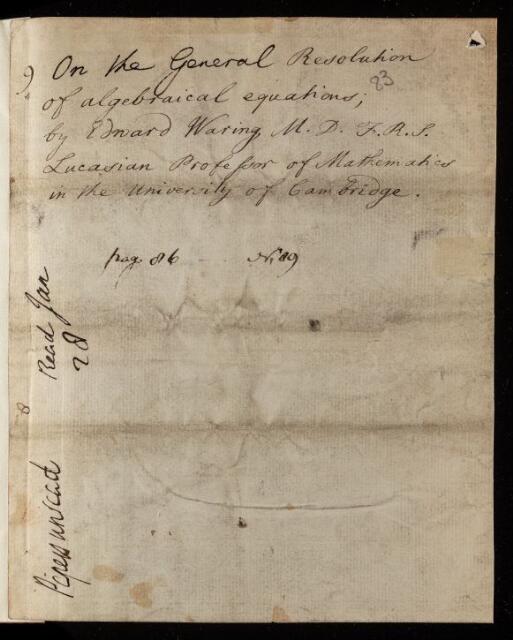 9
On the General Resolution
83
of algebraical equations;
by Edward Waring, M. D. F. R. S.
Lucasian Professor of Mathematics
in the University of Cambridge.
page 86 No. 89
Read Jan
28
8